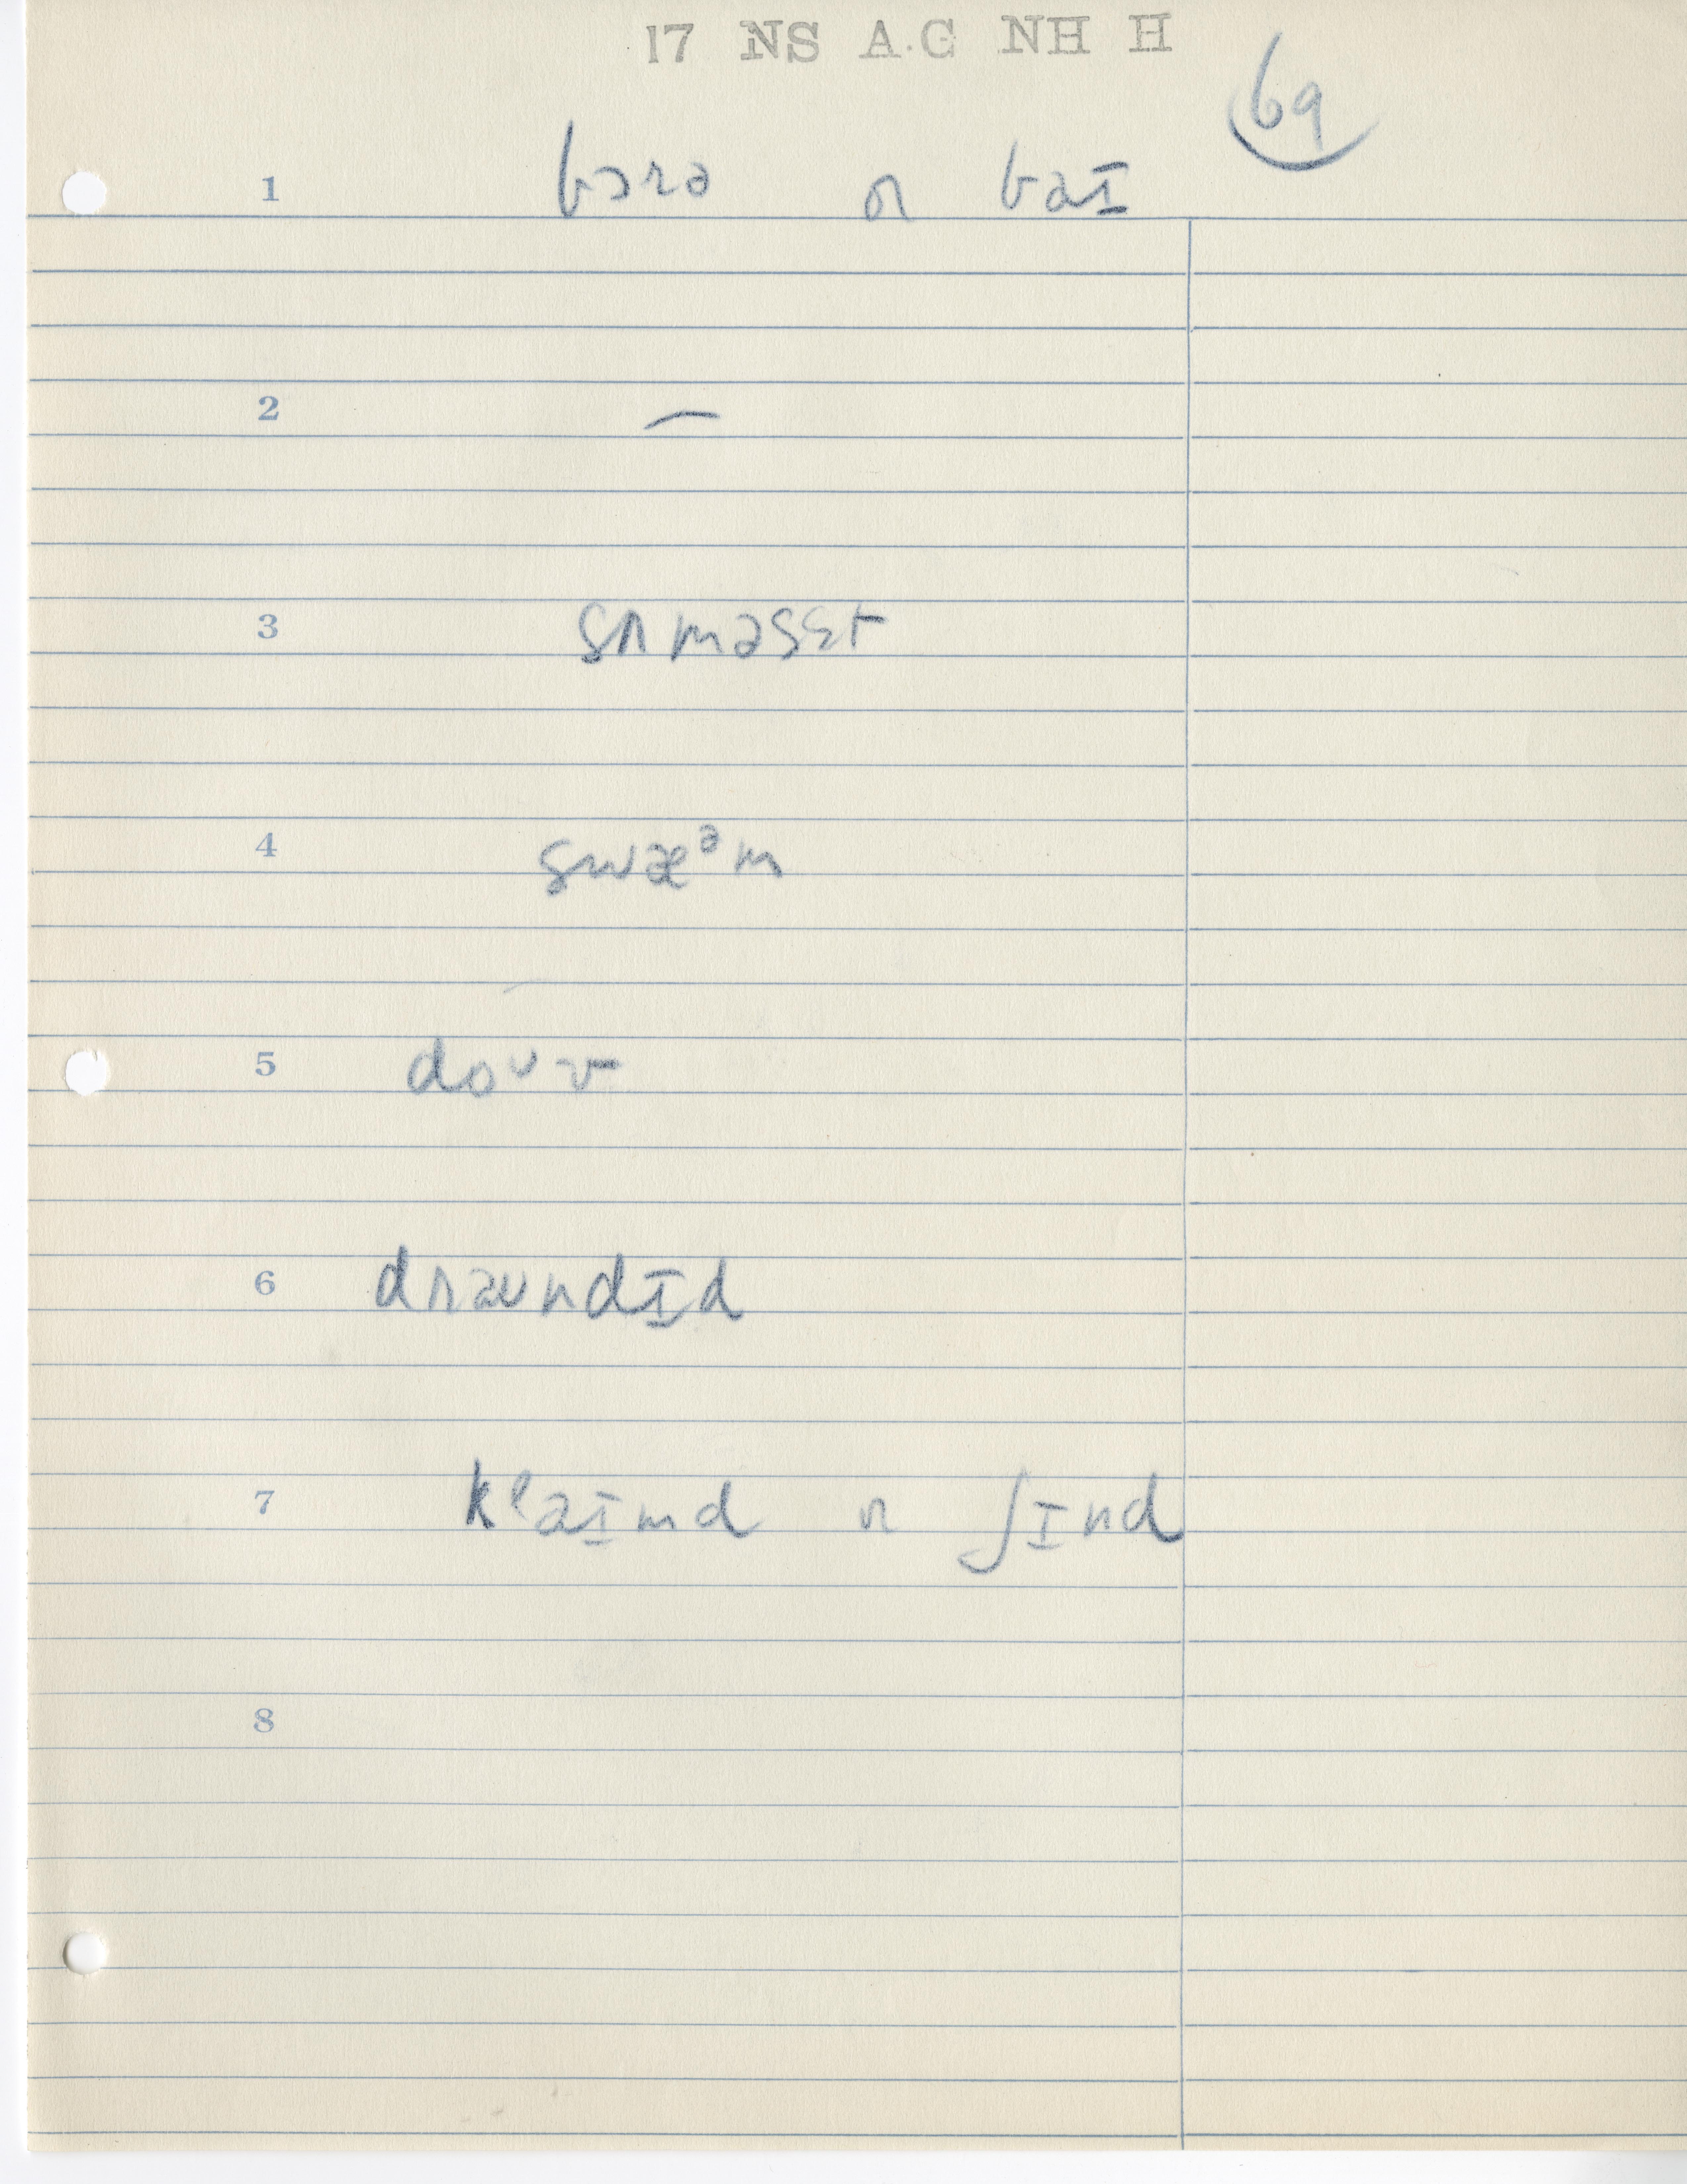 17 NS A.G NH H
69
1 bɔrə or baɪ
2 —
3 sʌməsɛt
4 swæᵊm
5 doᴜv
6 draʊndɪd
7 klaɪmd or ʃɪnd
8